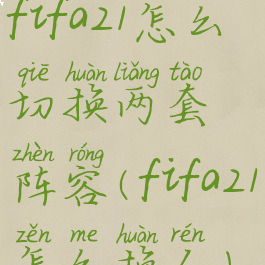 fifa21怎么
qiē huàn liǎng tào
切换两套
zhèn róng
阵容(fifa21
zěn me huàn rén
怎么换人)